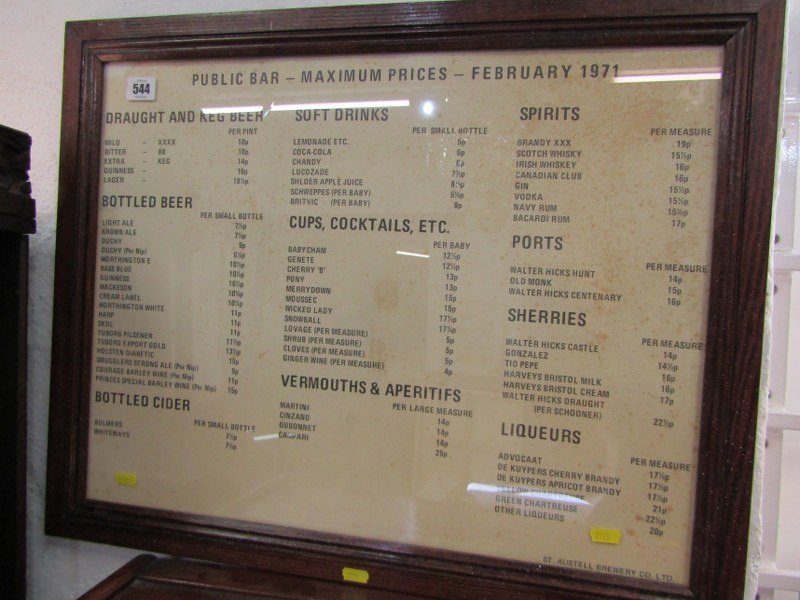 544
PUBLIC BAR – MAXIMUM PRICES – FEBRUARY 1971
DRAUGHT AND KEG BEER
PER PINT
MILD – XXXX
BITTER – BB 10p
EXTRA – KEG 14p
GUINNESS – 16p
LAGER –
BOTTLED BEER
PER SMALL BOTTLE
LIGHT ALE 7½p
BROWN ALE 7½p
DUCHY 9p
DUCHY (Per Nip) 6½p
WORTHINGTON E 10½p
BASS BLUE 10½p
GUINNESS 10½p
MACKESON 10½p
CREAM LABEL 10½p
WORTHINGTON WHITE 10½p
HARP 11p
SKOL 11p
TUBORG PILSENER 11p
TUBORG EXPORT GOLD 11½p
HOLSTEN DIABETIC 13½p
SMUGGLERS STRONG ALE (Per Nip) 15p
COURAGE BARLEY WINE (Per Nip) 9p
PRINCES SPECIAL BARLEY WINE (Per Nip) 11p
15p
BOTTLED CIDER
PER SMALL BOTTLE
BULMERS 7½p
WHITEWAYS 7½p
SOFT DRINKS
PER SMALL BOTTLE
LEMONADE ETC. 5p
COCA-COLA 6p
CHANDY
LUCOZADE 7½p
SHLOER APPLE JUICE 8½p
SCHWEPPES (PER BABY) 5½p
BRITVIC (PER BABY) 8p
CUPS, COCKTAILS, ETC.
PER BABY
BABYCHAM 12½p
GENETE 12½p
CHERRY 'B' 13p
PONY 13p
MERRYDOWN 15p
MOUSSEC
WICKED LADY 17½p
SNOWBALL 17½p
LOVAGE (PER MEASURE) 5p
SHRUB (PER MEASURE) 5p
CLOVES (PER MEASURE) 5p
GINGER WINE (PER MEASURE) 4p
VERMOUTHS & APERITIFS
PER LARGE MEASURE
MARTINI 14p
CINZANO 14p
DUBONNET 14p
CAMPARI 25p
SPIRITS
PER MEASURE
BRANDY XXX 19p
SCOTCH WHISKY 15½p
IRISH WHISKEY 16p
CANADIAN CLUB 16p
GIN 15½p
VODKA 15½p
NAVY RUM 15½p
BACARDI RUM 17p
PORTS
PER MEASURE
WALTER HICKS HUNT 14p
OLD MONK 15p
WALTER HICKS CENTENARY 16p
SHERRIES
PER MEASURE
WALTER HICKS CASTLE 14p
GONZALEZ 14½p
TIO PEPE 16p
HARVEYS BRISTOL MILK 16p
HARVEYS BRISTOL CREAM 17p
WALTER HICKS DRAUGHT
(PER SCHOONER) 22½p
LIQUEURS
PER MEASURE
ADVOCAAT 17½p
DE KUYPERS CHERRY BRANDY 17½p
DE KUYPERS APRICOT BRANDY 17½p
YELLOW CHARTREUSE 21p
GREEN CHARTREUSE 22½p
OTHER LIQUEURS 20p
ST. AUSTELL BREWERY CO. LTD.